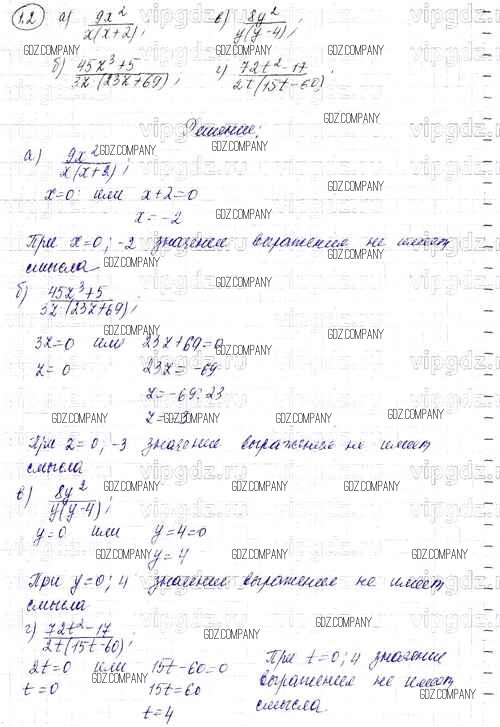 1.2 а) 9x²/x(x+2); в) 8y²/y(y-4);
б) 45z³+5/3z·(23z+69); г) 72t²-17/2t(15t-60).
Решение:
а) 9x²/x(x+2);
x=0 или x+2=0
x=-2
При x=0; -2 значение выражения не имеет
смысла
б) 45z³+5/3z·(23z+69);
3z=0 или 23z+69=0
z=0 23z=-69
z=-69:23
z=-3
При z=0; -3 значение выражение не имеет
смысла
в) 8y²/y(y-4);
y=0 или y=4=0
y=4
При y=0; 4 значение выражение не имеет
смысла
г) 72t²-17/2t(15t-60);
2t=0 или 15t-60=0
t=0 15t=60
t=4
При t=0; 4 значение
выражение не имеет
смысла
GDZ.COMPANY
vipgdz.ru